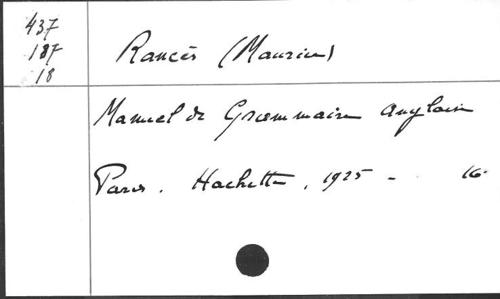 437
187
18
Rancès (Maurice)
Manuel de Grammaire Anglaise
Paris. Hachette, 1925 - 16